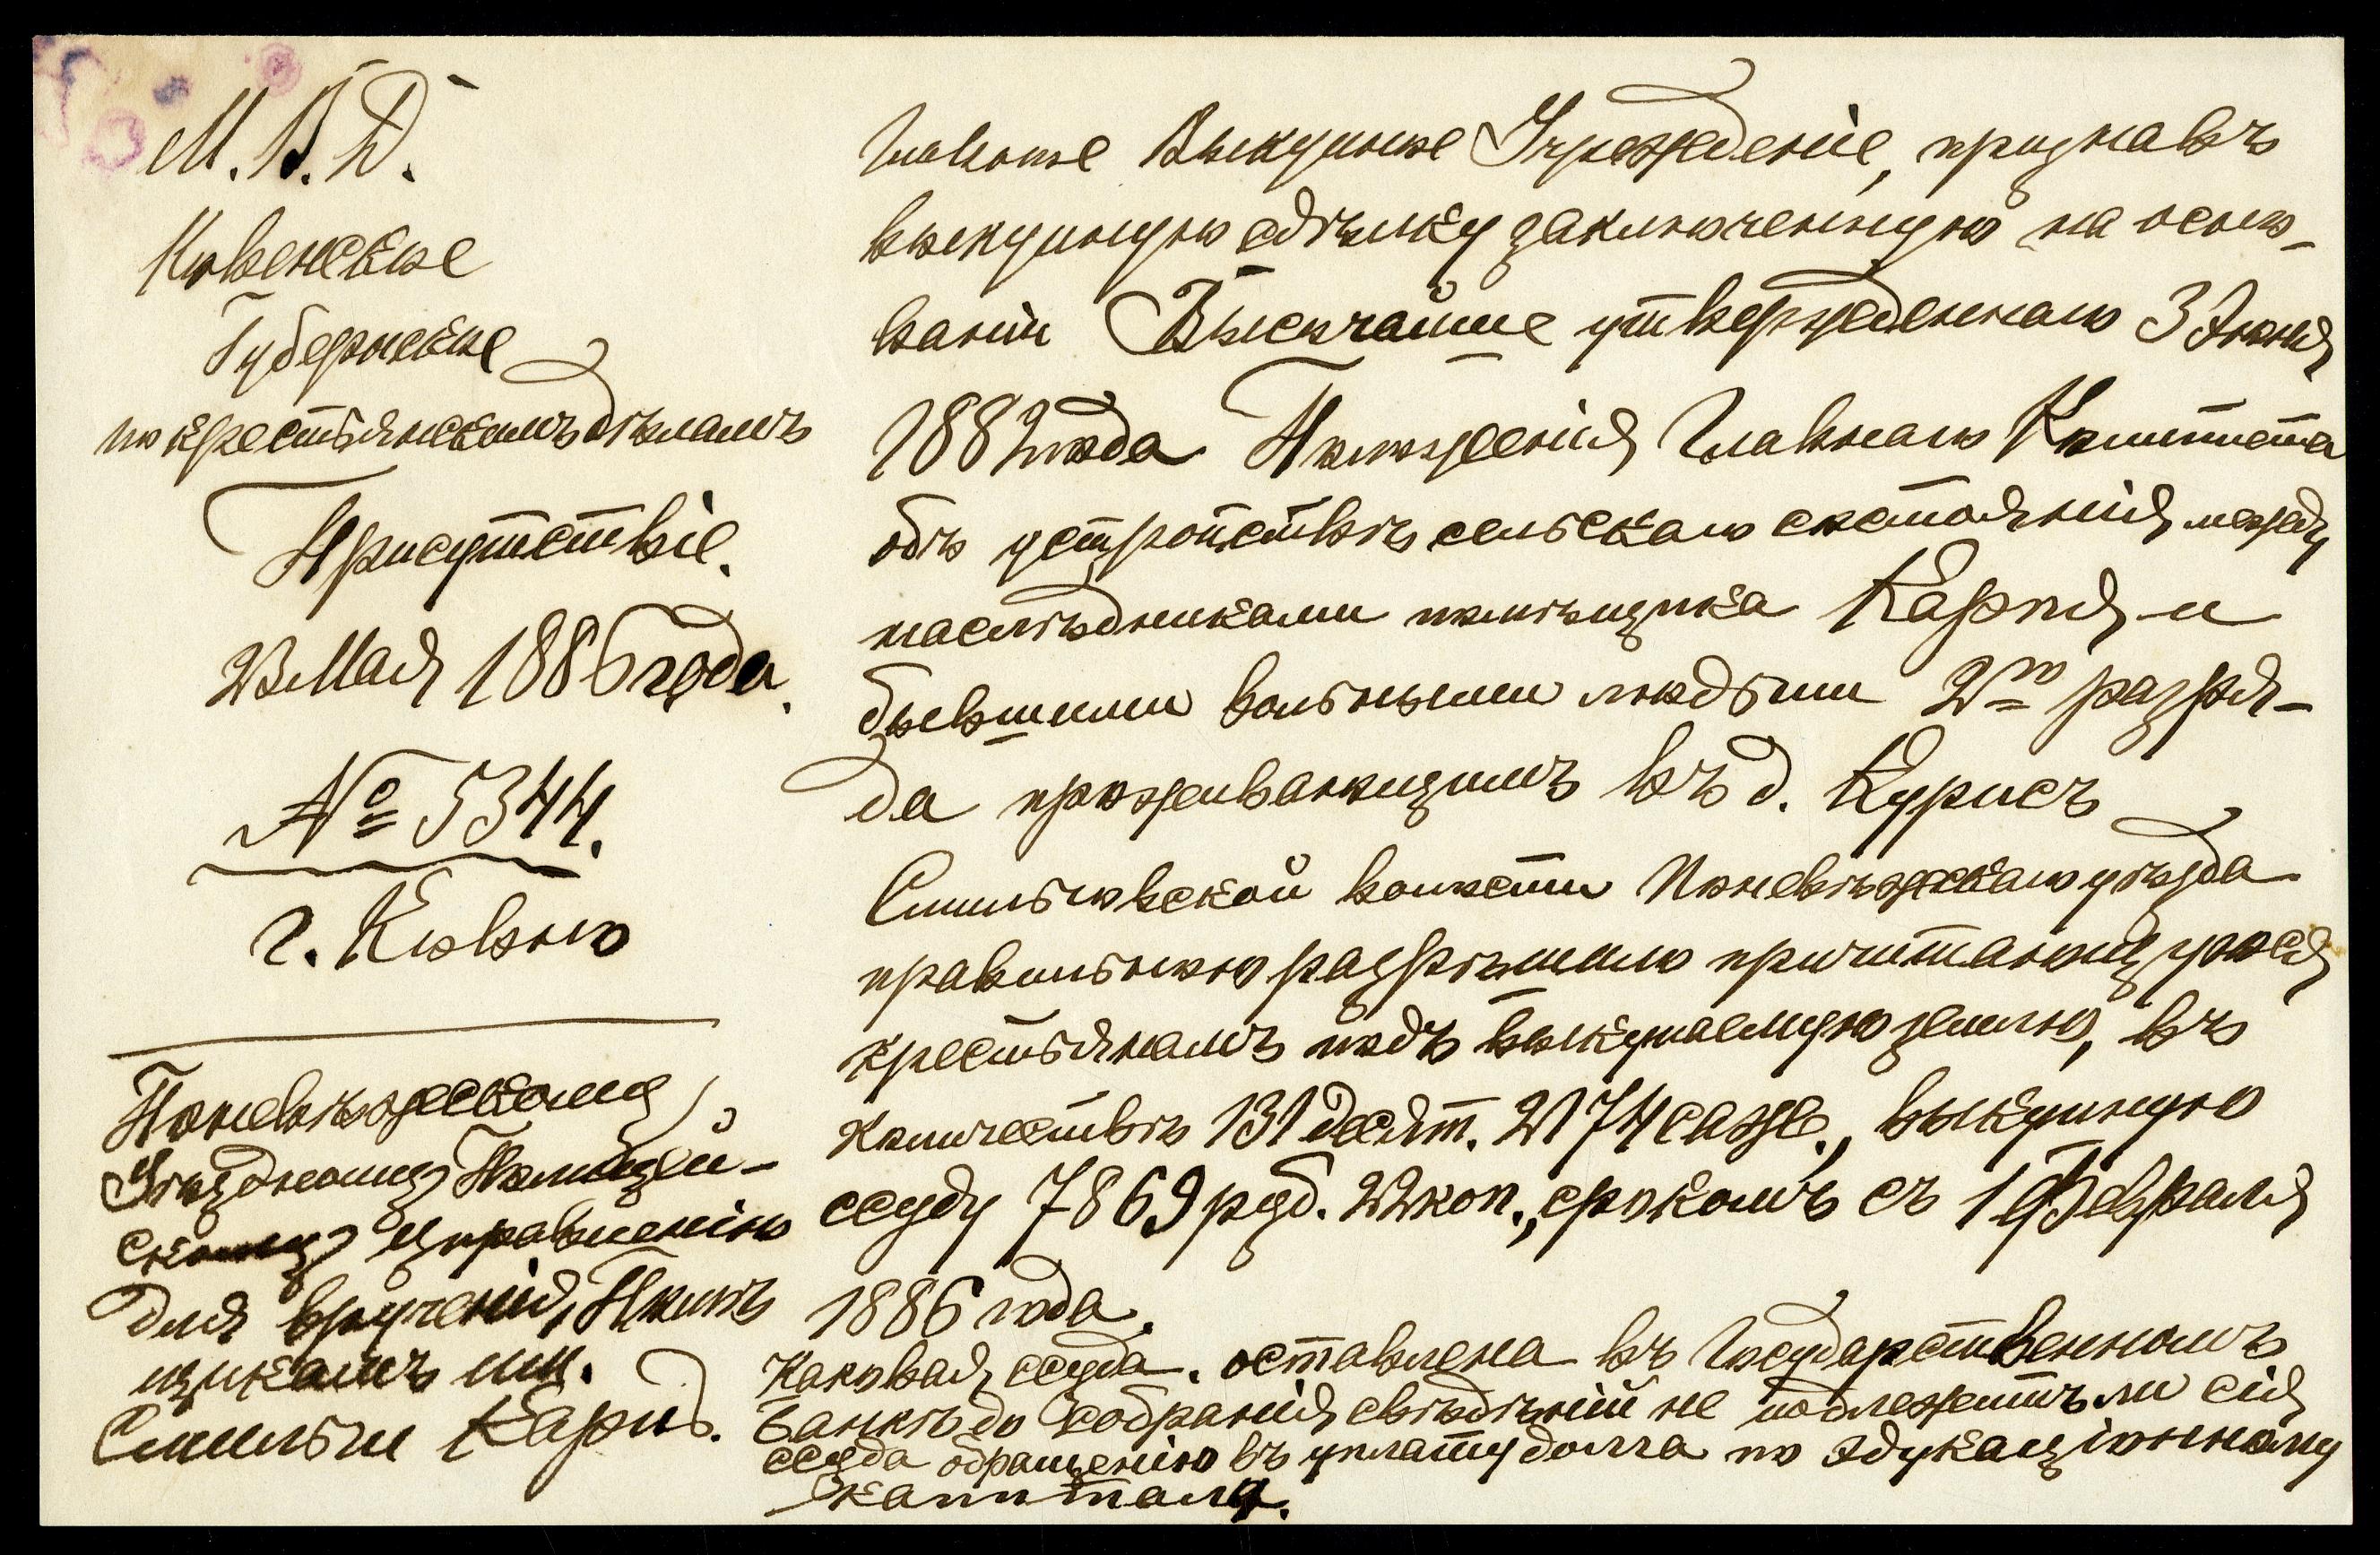 М. В. Д.
Ковенское
Губернское
по крестьянскимъ дѣламъ
Присутствіе.
23 Мая 1886 года.
№ 5344.
г. Ковно
Поневѣжскому
Уѣздному Полицей-
скому Управленію
для врученія Помѣ
щикамъ им.
Смильги Карпь.
Главное Выкупное Учрежденіе, признавъ
выкупную сдѣлку заключенную на осно-
ваніи Высочайше утвержденнаго 3 Іюня
1882 года Положенія Главнаго Комитета
объ устройствѣ сельскаго состоянія между
наслѣдниками помѣщика Карпя и
бывшими вольными людьми 2го разря-
да проживающимъ въ д. Курисъ
Смильговской волости Поневѣжскаго уѣзда
правильною разрѣшило причитающуюся
крестьянамъ подъ выкупаемую землю, въ
количествѣ 131 десят. 2174 саж., выкупную
ссуду 7869 руб. 22 коп., срокомъ съ 1 Февраля
1886 года.
Каковая ссуда. оставлена въ Государственномъ
Банкѣ до собранія свѣдѣній не подлежитъ ли сія
ссуда обращенію въ уплату долга по эдукаціонному
капиталу.